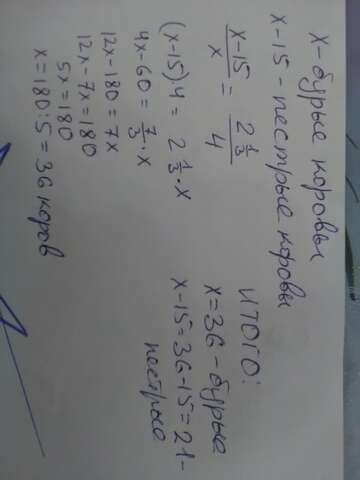 x - бурые коровы
x - 15 - пестрые коровы
x-15/x = 2 1/3/4
(x-15)·4 = 2 1/3 · x
4x - 60 = 7/3 · x
12x - 180 = 7x
12x - 7x = 180
5x = 180
x = 180 : 5 = 36 коров
ИТОГО:
x = 36 - бурые
x - 15 = 36 - 15 = 21 -
пестрые